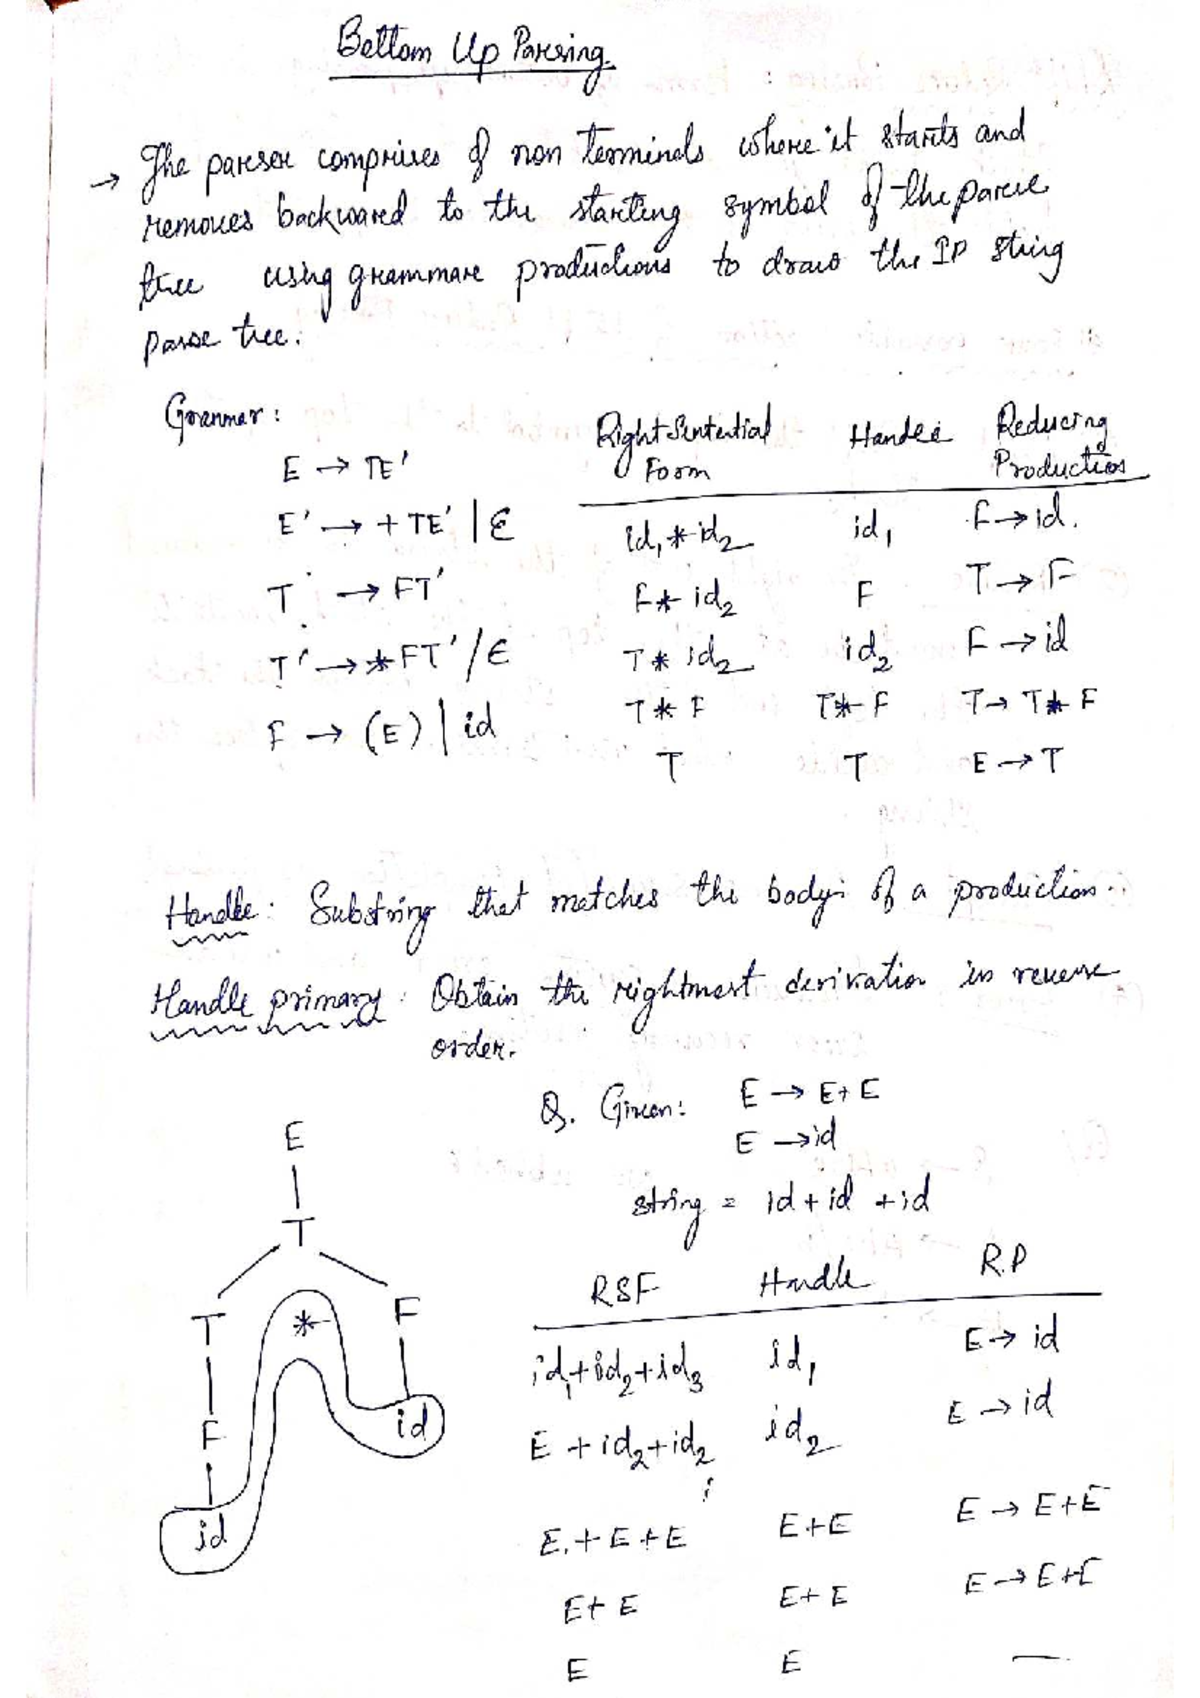 Bottom Up Parsing.
→ The parser comprises of non terminals where it starts and
removes backward to the starting symbol of the parse
tree using grammar productions to draw the IP string
parse tree.
Grammar:
E → TE'
E' → + TE' | ε
T → FT'
T' → *FT' / ε
F → (E) | id
Right Sentential Form Handle Reducing Productions
id₁ * id₂ id₁ F → id.
F * id₂ F T → F
T * id₂ id₂ F → id
T * F T * F T → T * F
T T E → T
Handle: Substring that matches the body of a production..
Handle primary: Obtain the rightmost derivation in reverse
order.
E
T
T * F
F id
id
Q. Given: E → E + E
E → id
string = id + id + id
RSF Handle R.P
id₁ + id₂ + id₃ id₁ E → id
E + id₂ + id₂ id₂ E → id
E + E + E E + E E → E + E
E + E E + E E → E + E
E E —